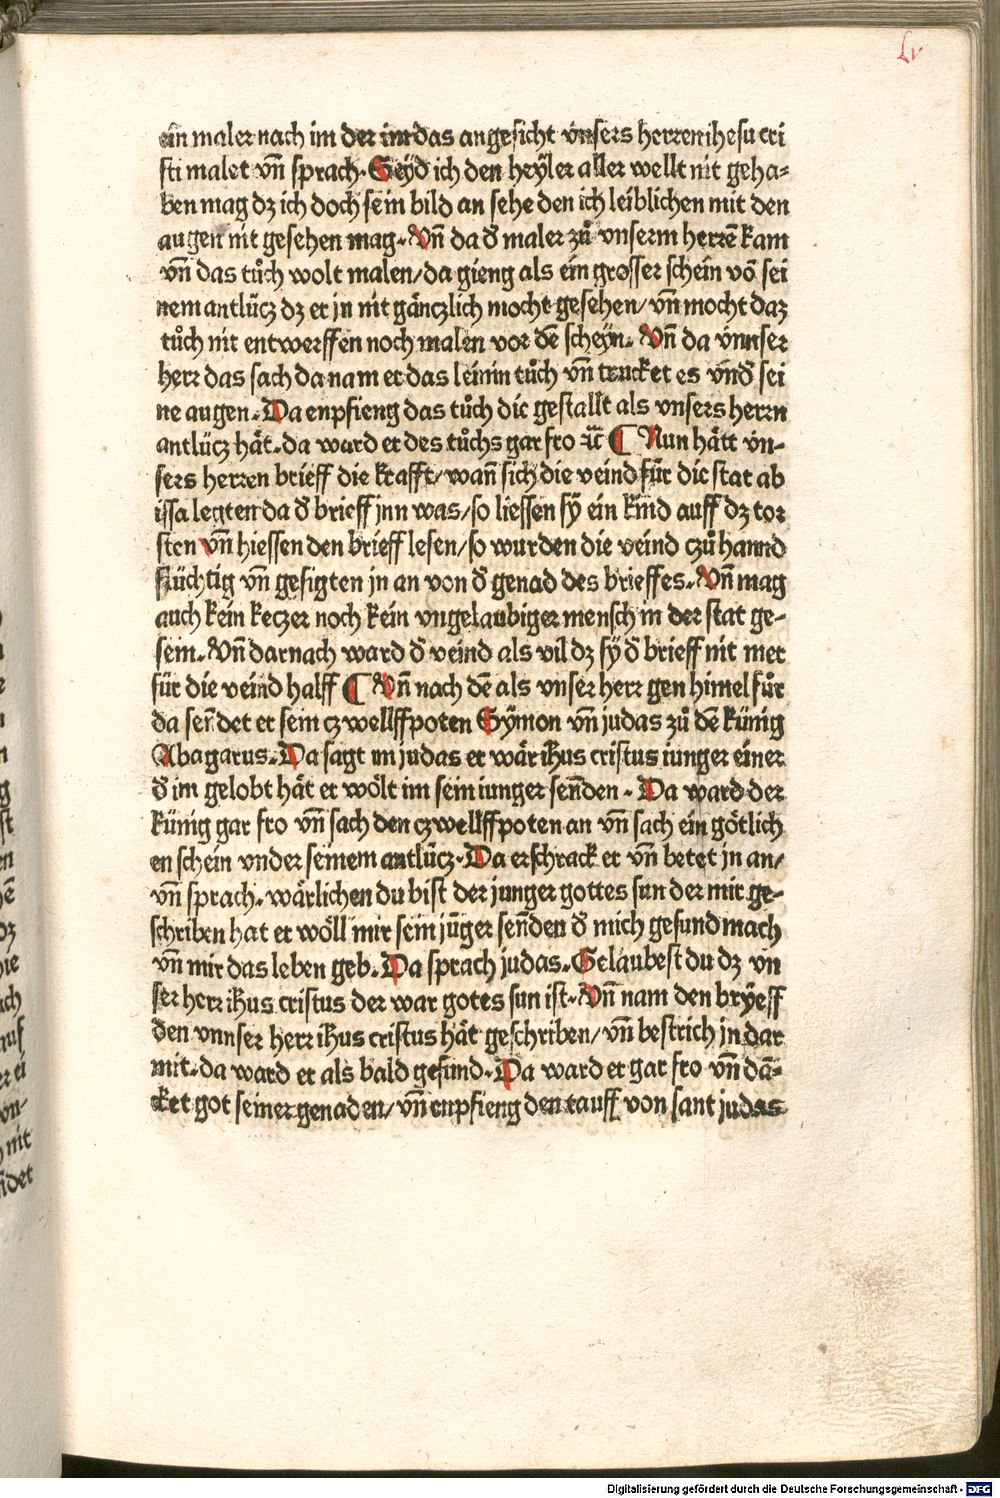 Lv
ein maler nach im der im das angesicht vnsers herren ihesu cri
sti malet vn̄ sprach. Seÿd ich den heyler aller wellt nit geha-
ben mag dz ich doch sein bild an sehe den ich leiblichen mit den
augen nit gesehen mag. Vn̄ da d̕ maler zů vnserm herrē kam
vn̄ das tůch wolt malen/ da gieng als ein grosser schein vō sei
nem antlücz dz er in nit gänczlich mocht gesehen/ vn̄ mocht daz
tůch nit entwerffen noch malen vor dē scheyn. Vn̄ da vnnser
herr das sach da nam er das leinin tůch vn̄ trucket es vnd̕ sei
ne augen. Da enpfieng das tůch die gestallt als vnsers herrn
antlücz hät. da ward er des tůchs gar fro ꝛc̄ ¶ Nun hätt vn-
sers herren brieff die krafft/ wan̄ sich die veind für die stat ab
issa legten da d̕ brieff inn was/ so liessen sÿ ein kind auff dz tor
sten vn̄ hiessen den brieff lesen/ so wurden die veind czůhannd
flüchtig vn̄ gesigten jn an von d̕ genad des brieffes. Vn̄ mag
auch kein keczer noch kein vngelaubiger mensch in der stat ge-
sein. Vn̄ darnach ward d̕ veind als vil dz sÿ d̕ brieff nit mer
für die veind halff ¶ Vn̄ nach dē als vnser herr gen himel fůr
da sen̄det er sein czwellffpoten Sÿmon vn̄ judas zů dē künig
Abagarus. Da sagt im judas er wär ihūs cristus iunger einer
d̕ im gelobt hät er wölt im sein iunger sen̄den. Da ward der
künig gar fro vn̄ sach den czwellffpoten an vn̄ sach ein götlich
en schein vnder seinem antlücz. Da erschrack er vn̄ betet jn an/
vn̄ sprach. wärlichen du bist der junger gottes sun der mir ge-
schriben hat er wöll mir sein jūger sen̄den d̕ mich gesund mach
vn̄ mir das leben geb. Da sprach judas. Gelaubest du dz vn
ser herr ihūs cristus der war gotes sun ist. Vn̄ nam den brÿeff
den vnnser herr ihūs cristus hät geschriben/ vn̄ bestrich in dar
mit. da ward er als bald gesund. Da ward er gar fro vn̄ dā-
cket got seiner genaden/ vn̄ enpfieng den tauff von sant judas
Digitalisierung gefördert durch die Deutsche Forschungsgemeinschaft - DFG